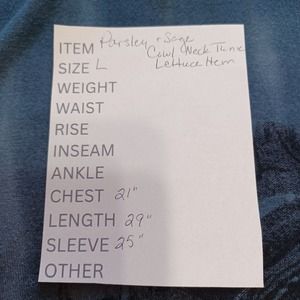 ITEM Parsley + Sage
Cowl Neck Tunic
SIZE L Lettuce Hem
WEIGHT
WAIST
RISE
INSEAM
ANKLE
CHEST 21"
LENGTH 29"
SLEEVE 25"
OTHER